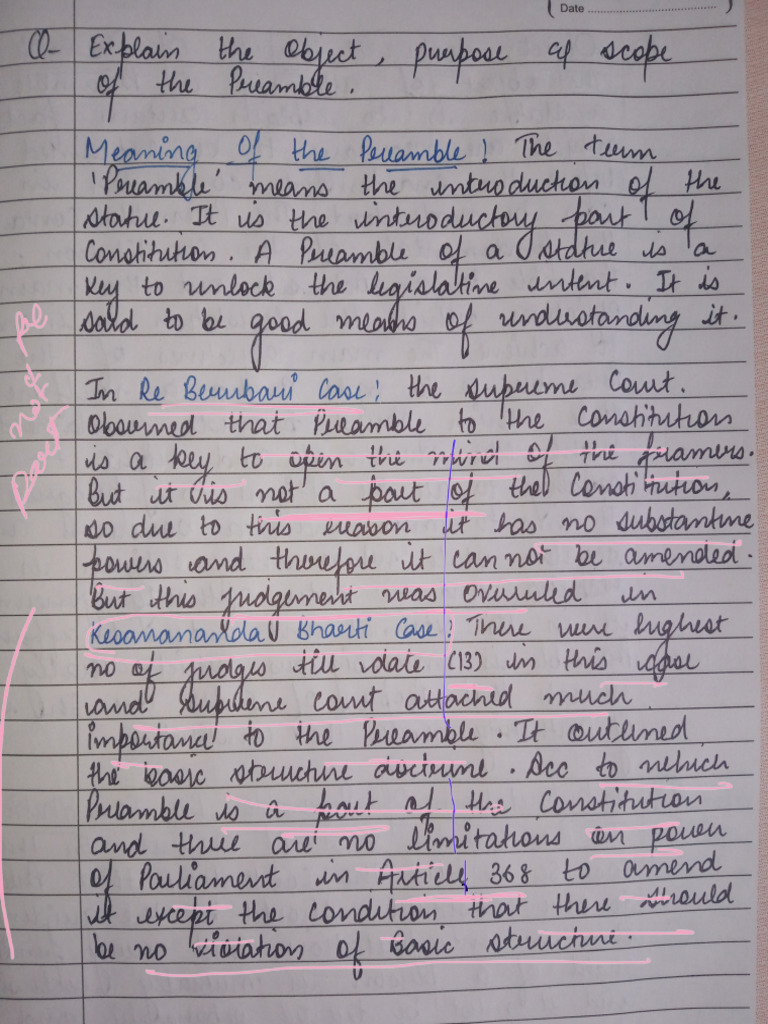 ( Date .................................... )
Q- Explain the Object, purpose & scope
of the Preamble.
Meaning Of the Preamble! The term
'Preamble' means the introduction of the
statue. It is the introductory part of
Constitution. A Preamble of a statue is a
key to unlock the legislative intent. It is
said to be good means of understanding it.
In Re Berubari Case: the supreme Court.
Observed that Preamble to the Constitution
is a key to open the mind of the framers.
But it is not a part of the Constitution,
so due to this reason it has no substantive
powers and therefore it can not be amended.
But this judgement was overruled in
Kesavananda Bharti Case! There were highest
no of judges till date (13) in this case
and supreme court attached much
importance to the Preamble. It outlined
the basic structure doctrine. Acc to which
Preamble is a part of the Constitution
and there are no limitations on power
of Parliament in Article 368 to amend
it except the condition that there should
be no violation of Basic structure.
not be
part